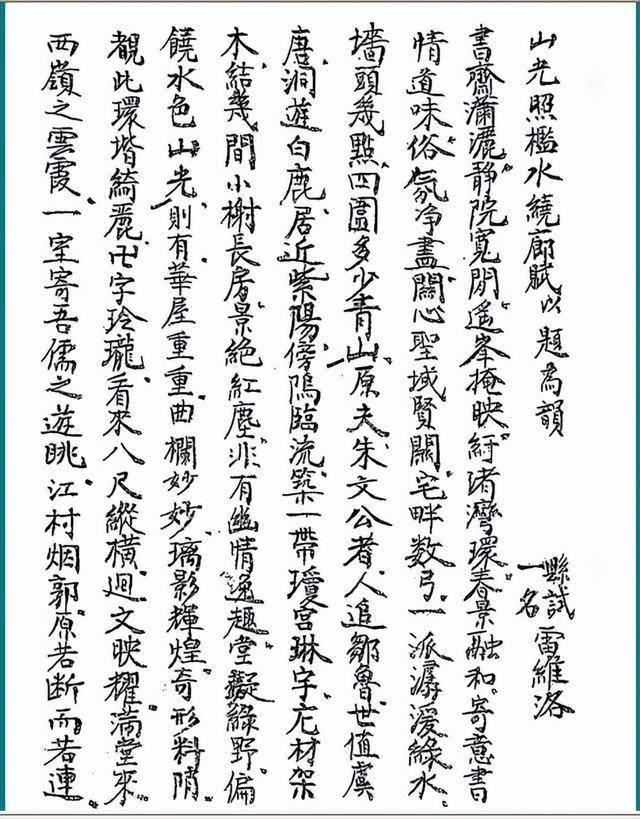 山光照檻水繞廊賦以題為韻
縣試一名雷維洛
書齋瀟灑靜院寬閒遥峯掩映紆渚灣環春景融和寄意書
情道味俗氛净盡關心聖域賢關宅畔数弓一派潺湲綠水
墻頭幾點四圍多少青山原夫朱文公者人追鄒魯世值虞
唐洞遊白鹿居近紫陽傍隖臨流築一帶瓊宮琳宇庀材架
木結幾間小榭長房景絕紅塵非有幽情逸趣堂擬綠野偏
饒水色山光則有華屋重重曲欄妙妙璃影輝煌奇形料
覩此環堦綺麗卍字玲瓏看來八尺縱橫迴文映耀滿堂來
西嶺之雲霞一室寄吾儒之遊眺江村烟郭原若断而若連